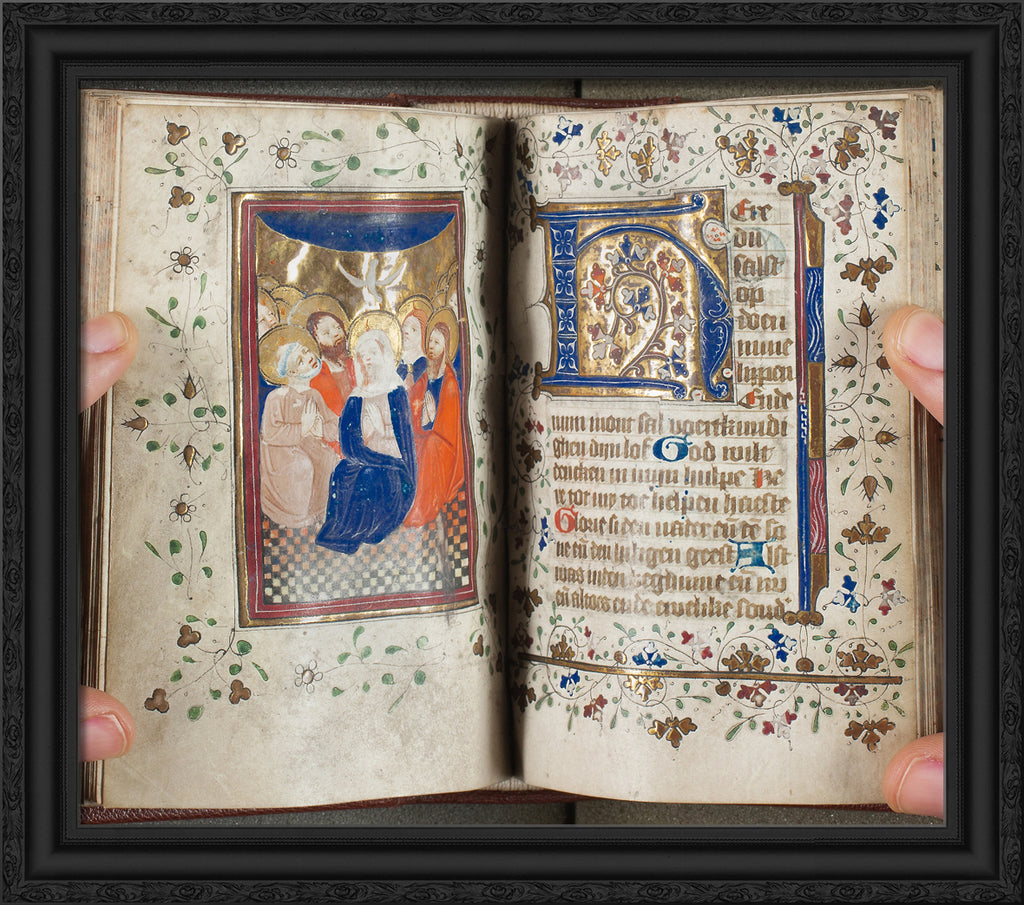 Here
du
salst
op
doen
mine
lippen
Ende
mijn mont sal voertkundi
ghen dijn lof God wilt
dencken in mijn hulpe He
re tot my toe helpen haeste
Glorie si den vader eñ te so
ne eñ den heiligen geest Alst
was inden beghinne eñ nu
eñ altoes ende ewelike sond